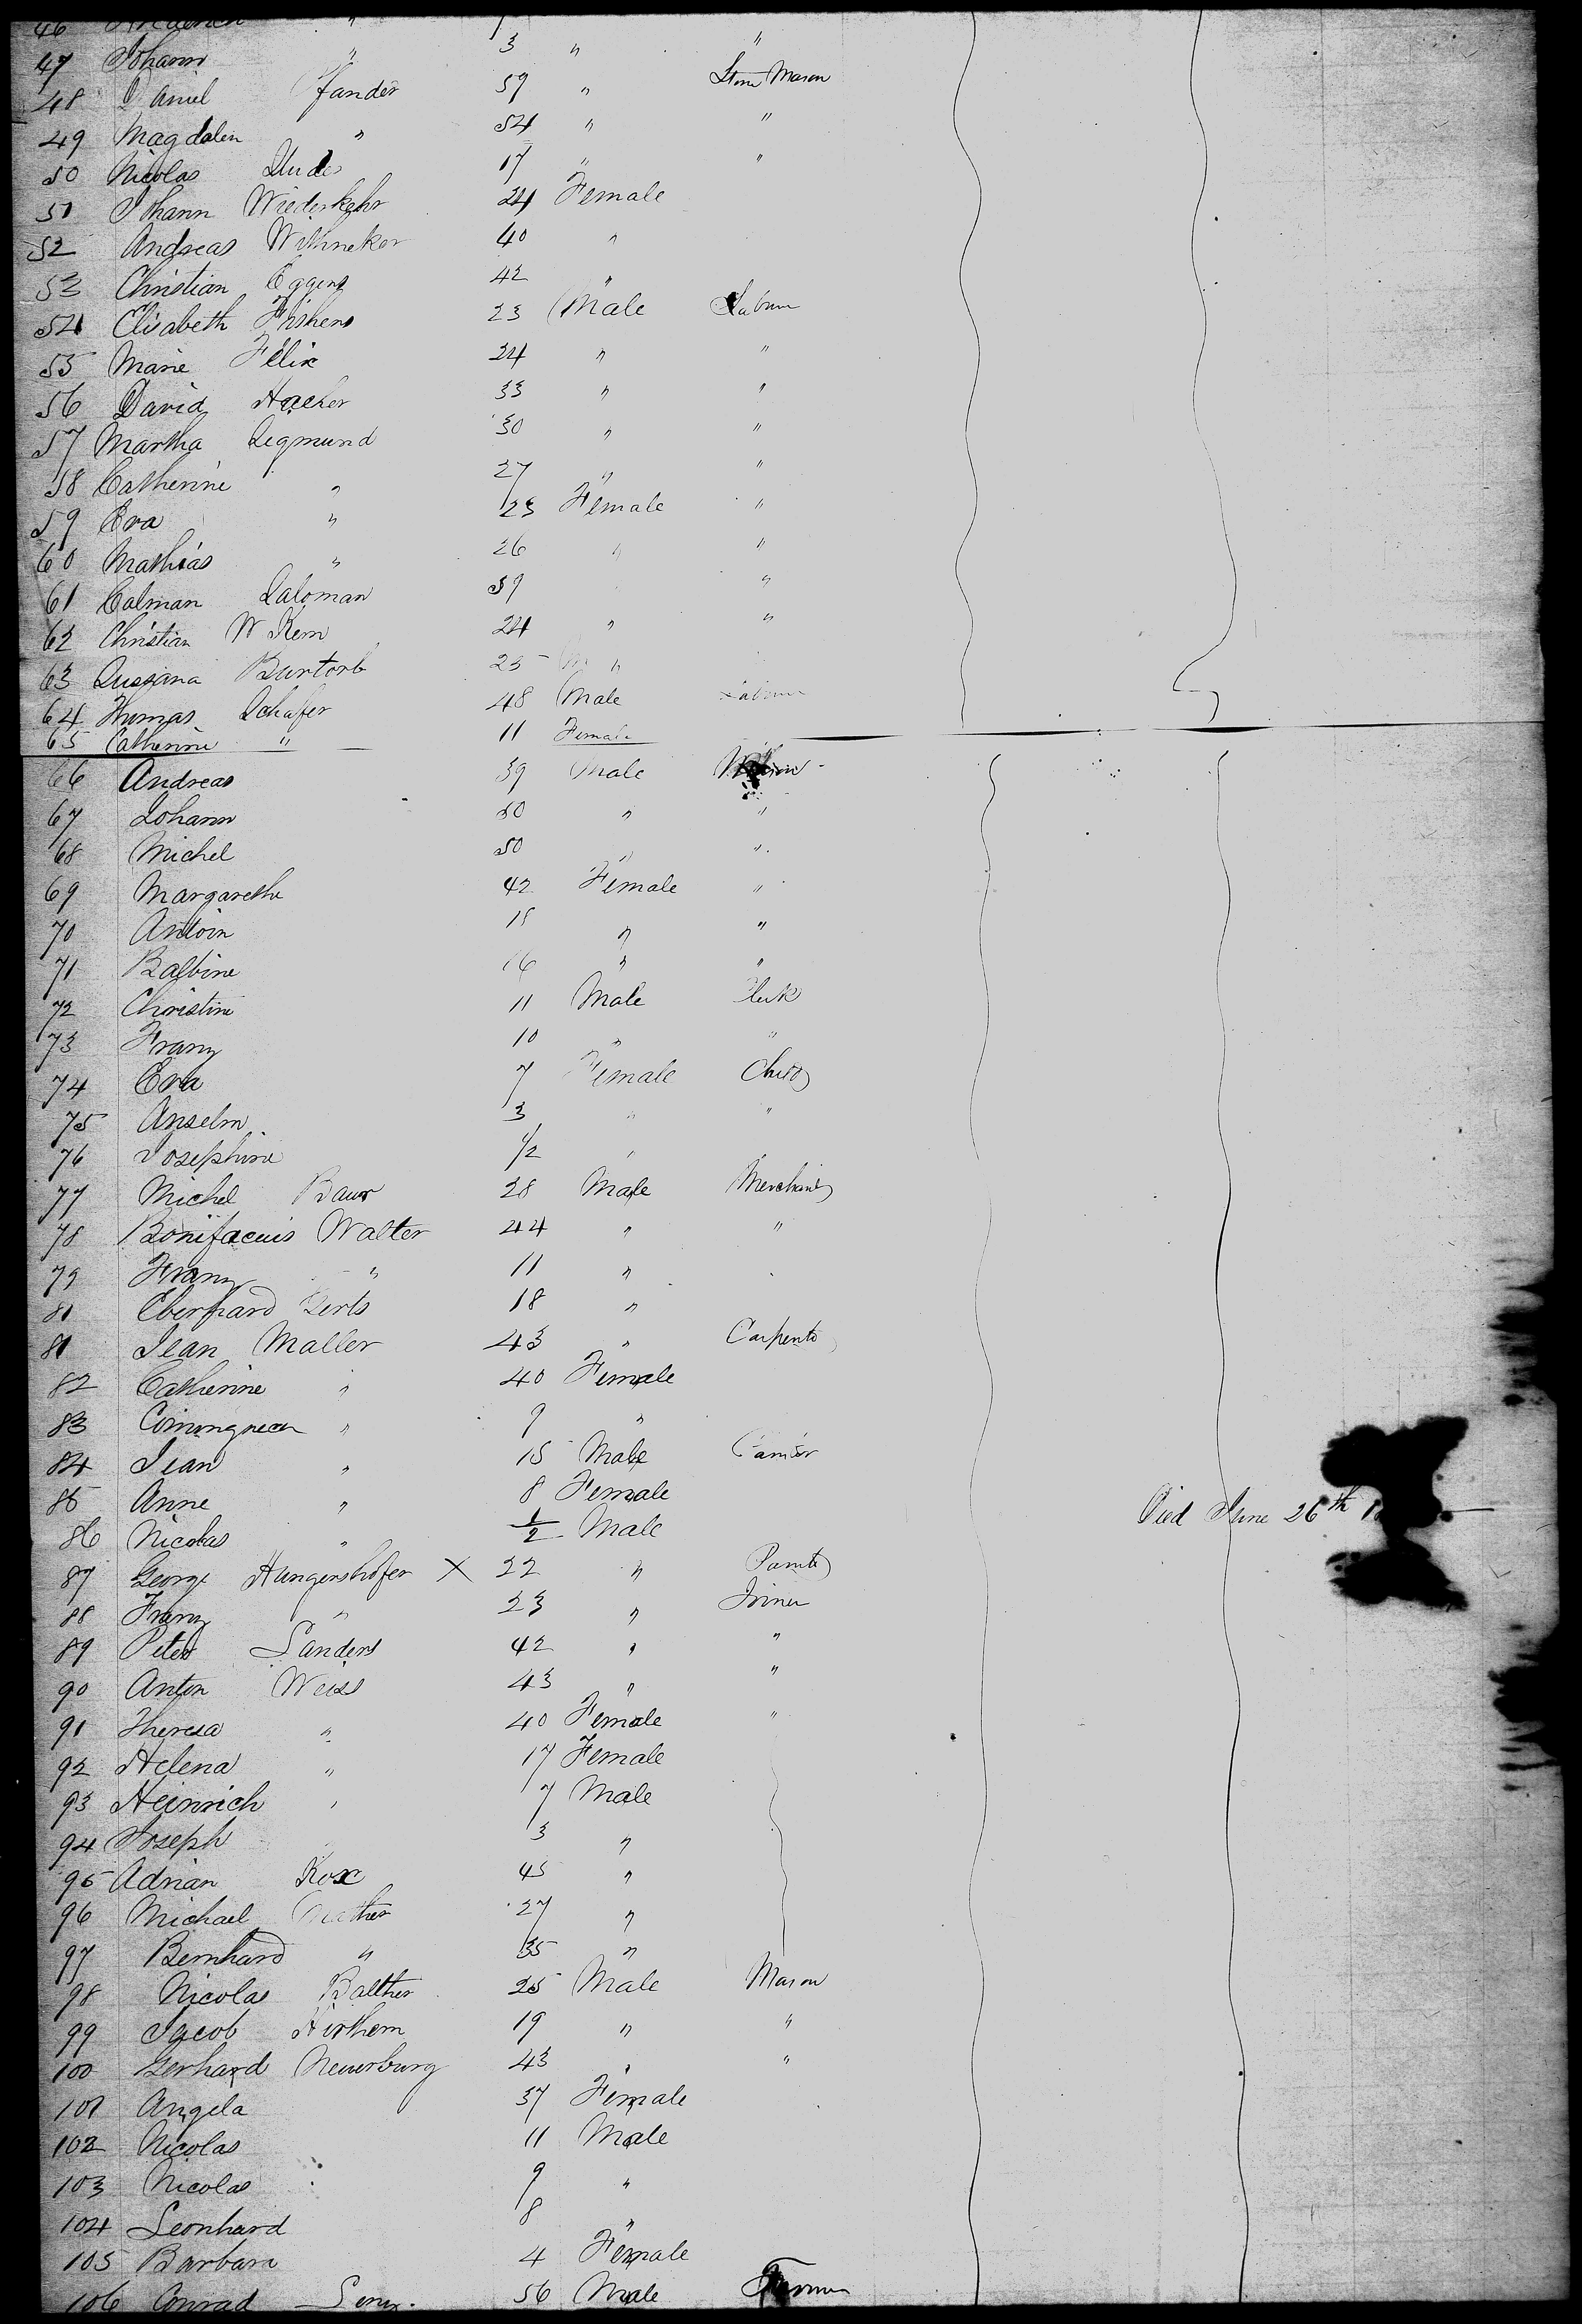 46 "
47 Johann " 3 " "
48 Daniel Pfander 59 " Stone Mason
49 Magdalen " 54 " "
50 Nicolas 17 " "
51 Johann Wiederkehr 24 Female
52 Andreas Withneker 40 "
53 Christian Eggens 42 "
54 Elisabeth Fishens 23 Male Labourer
55 Marie Felix 24 " "
56 David Hacker 33 " "
57 Martha Segmund 30 " "
58 Catherine " 27 " "
59 Eva " 23 Female "
60 Mathias " 26 " "
61 Calman Saloman 39 "
62 Christian W Kern 24 " "
63 Sussana Bartorb 25 "
64 Thumas Schafer 48 Male
65 Catherine " 11 Female
66 Andreas 39 Male
67 Johann 30 " "
68 Michel 50 " "
69 Margarethe 42 Female "
70 Antoin 18 " "
71 Balbine 16 " "
72 Christine 11 Male Clerk
73 Franz 10 " "
74 Eva 7 Female Child
75 Anselm 3 " "
76 Josephine 1/2 "
77 Michel Baur 28 Male Merchant
78 Bonifacius Walter 44 " "
79 Franz " 11 "
81 Eberhard Gerts 18 "
81 Jean Maller 43 " Carpenter
82 Catherine " 40 Female
83 " 9 "
84 Jean " 15 Male
85 Anne " 8 Female
86 Nicolas " 1/2 Male Died June 26th
87 George Hungershofer X 22 " Painter
88 Franz " 23 " Joiner
89 Peter Sanders 42 " "
90 Anton Weiss 43 " "
91 Theresa " 40 Female "
92 Helena " 17 Female
93 Heinrich " 7 Male
94 Joseph 3 "
95 Adrian Kox 45 "
96 Michael Mather 27 "
97 Bernhard " 35 "
98 Nicolas Balther 25 Male Mason
99 Jacob Hirthem 19 " "
100 Gerhard Neuerburg 43 " "
101 Angela 37 Female
102 Nicolas 11 Male
103 Nicolas 9 "
104 Leonhard 8 "
105 Barbara 4 Female
106 Conrad 56 Male Farmer